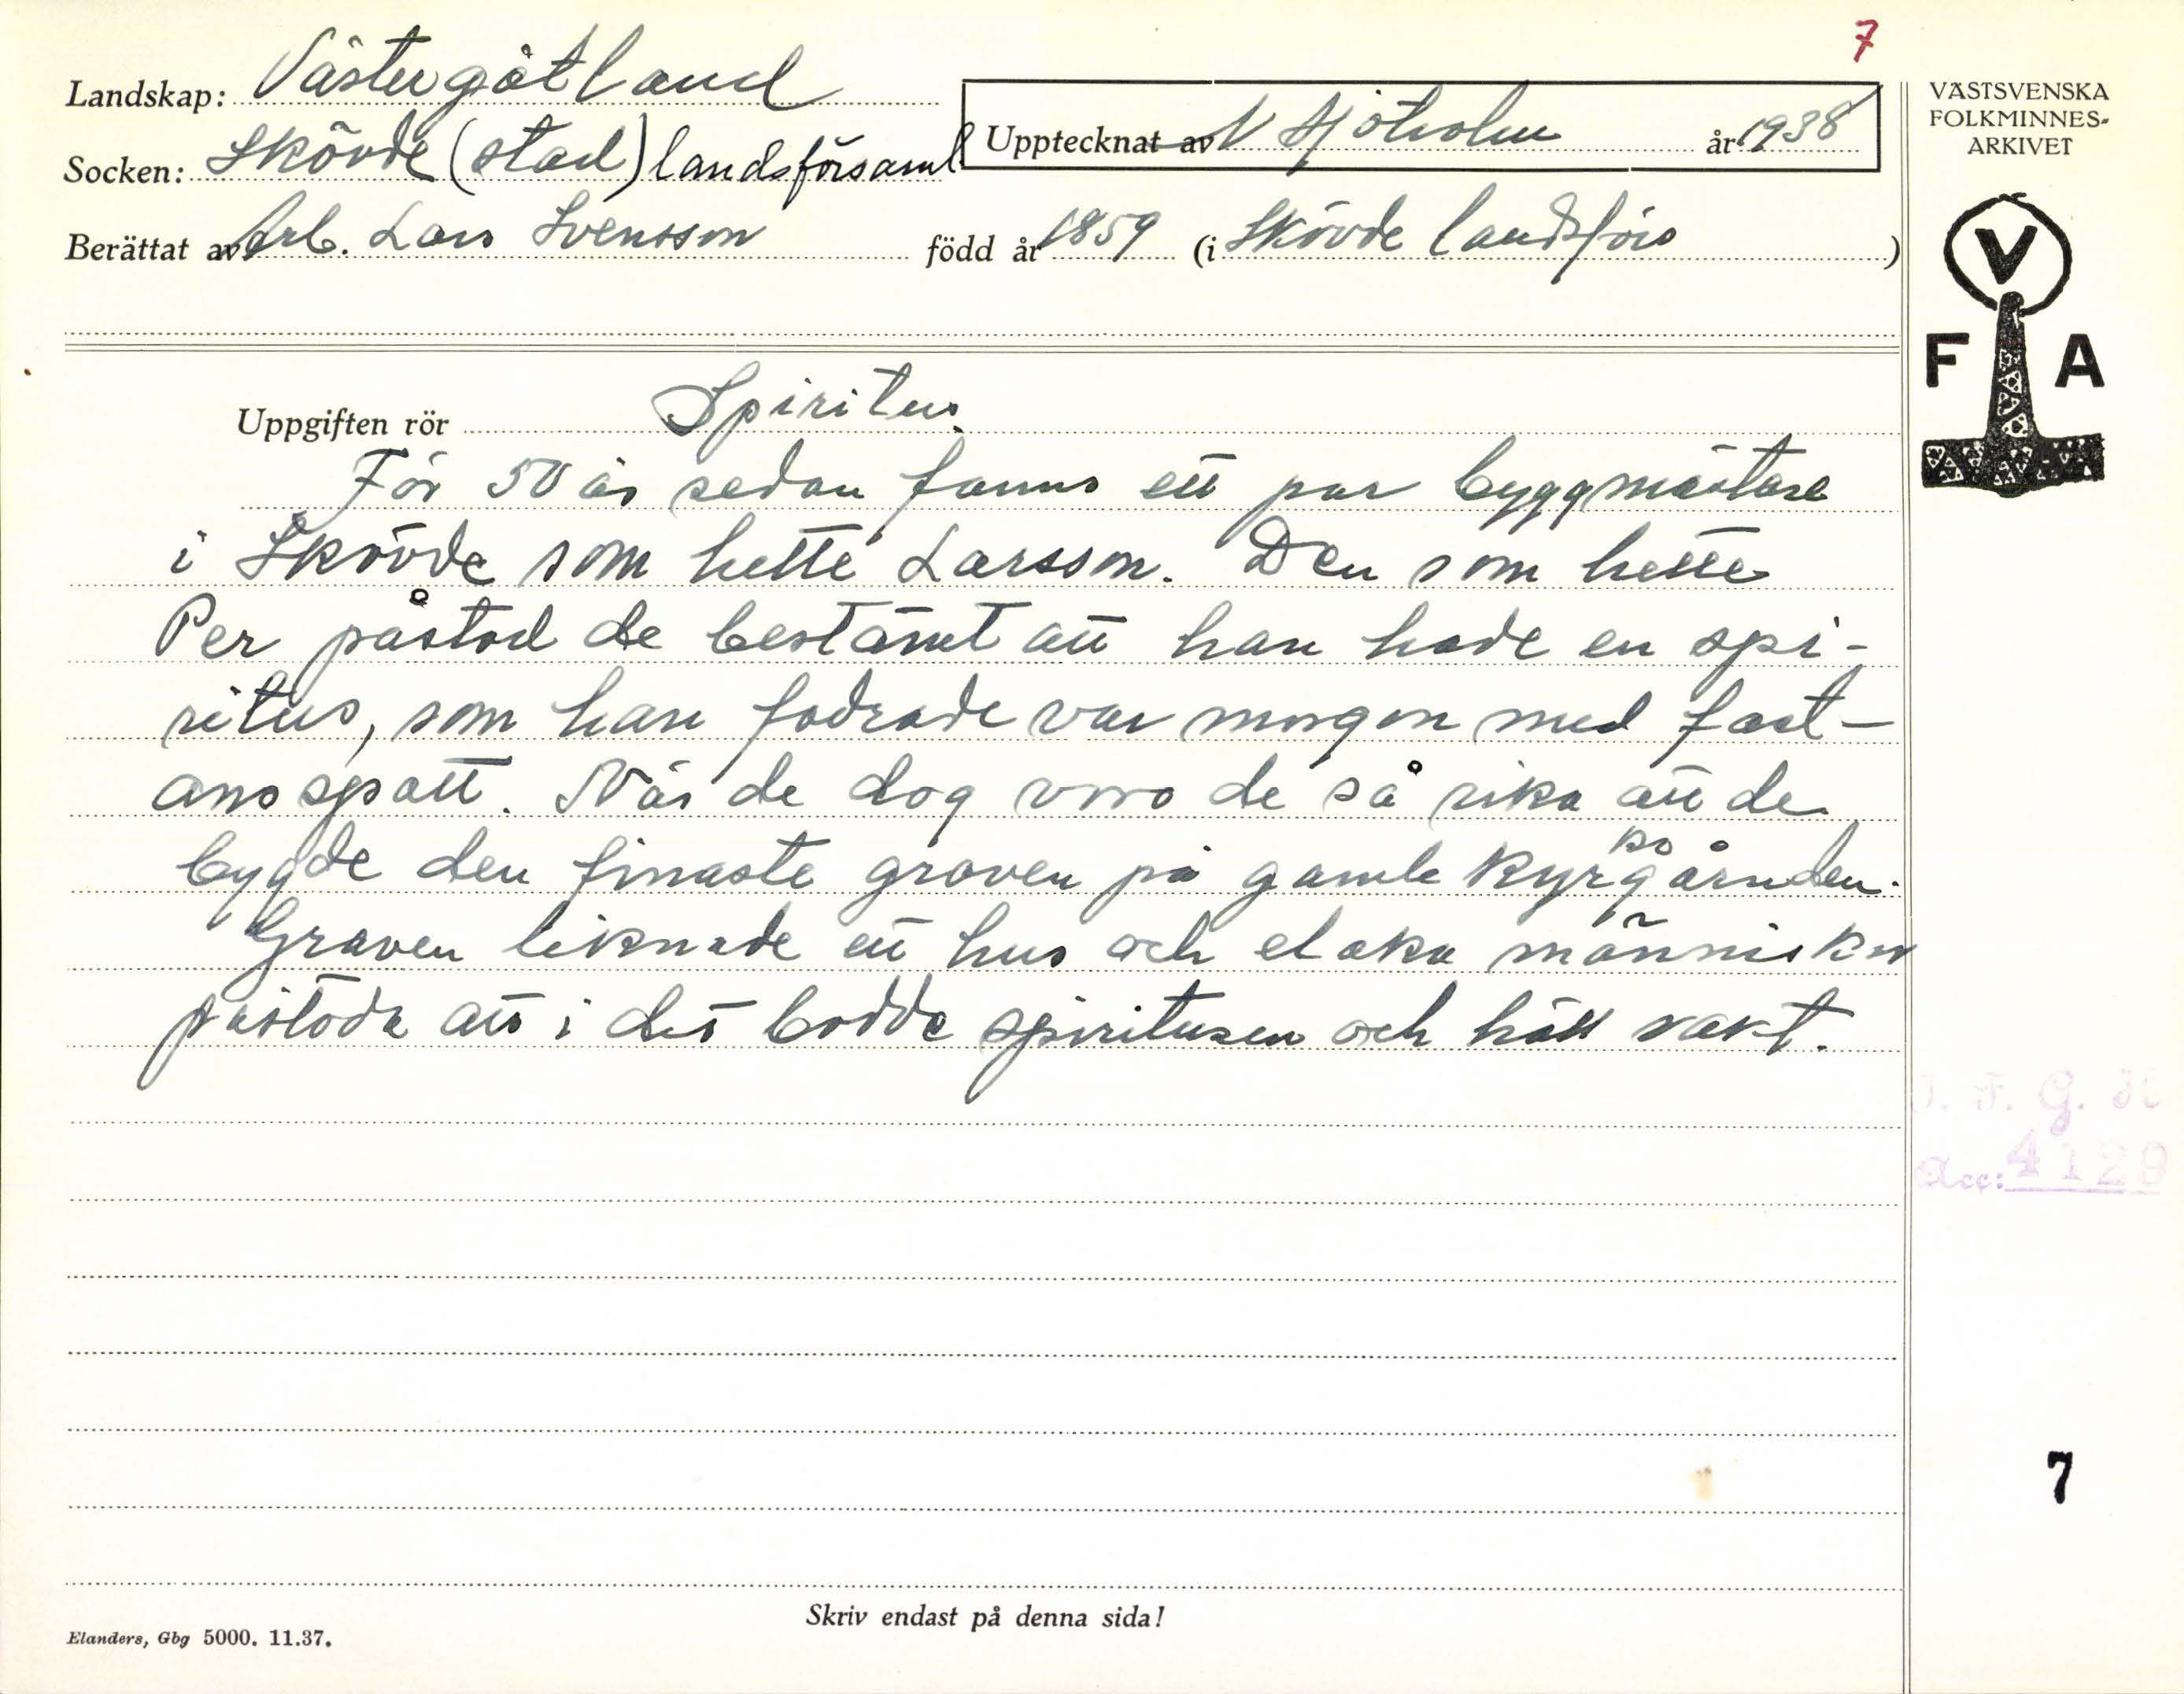 7
Landskap: Västergötland
Socken: Skövde (stad) landsförsaml
Upptecknat av N Sjöholm år 1938
Berättat av Arb. Lars Svensson född år 1859 (i Skövde landsförs )
VÄSTSVENSKA
FOLKMINNES-
ARKIVET
V
F A
Uppgiften rör Spiritus.
För 50 år sedan fanns ett par byggmästare
i Skövde som hette Larsson. Den som hette
Per påstod de bestämt att han hade en spi-
ritus, som han fodrade var morgon med fast-
ans spott. När de dog voro de så rika att de
bygde den finaste graven på gamla kyrgårnden.
ko
Graven liknade ett hus och elaka människer
påstodo att i det bodde spiritusen och höll vakt.
G.
Acc: 4129
7
Skriv endast på denna sida!
Elanders, Gbg 5000. 11.37.